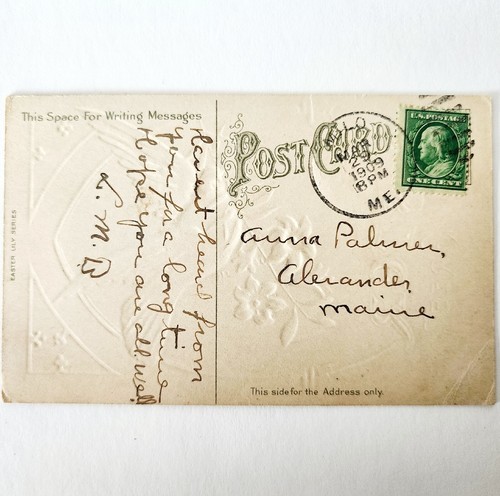 This Space For Writing Messages
POST CARD
U.S. POSTAGE
ONE CENT
29
1909
6 PM
ME.
Havent heard from
you for a long time
Hope you are all well
L. M. B
Anna Palmer,
Alexander,
Maine
EASTER LILY SERIES
This side for the Address only.